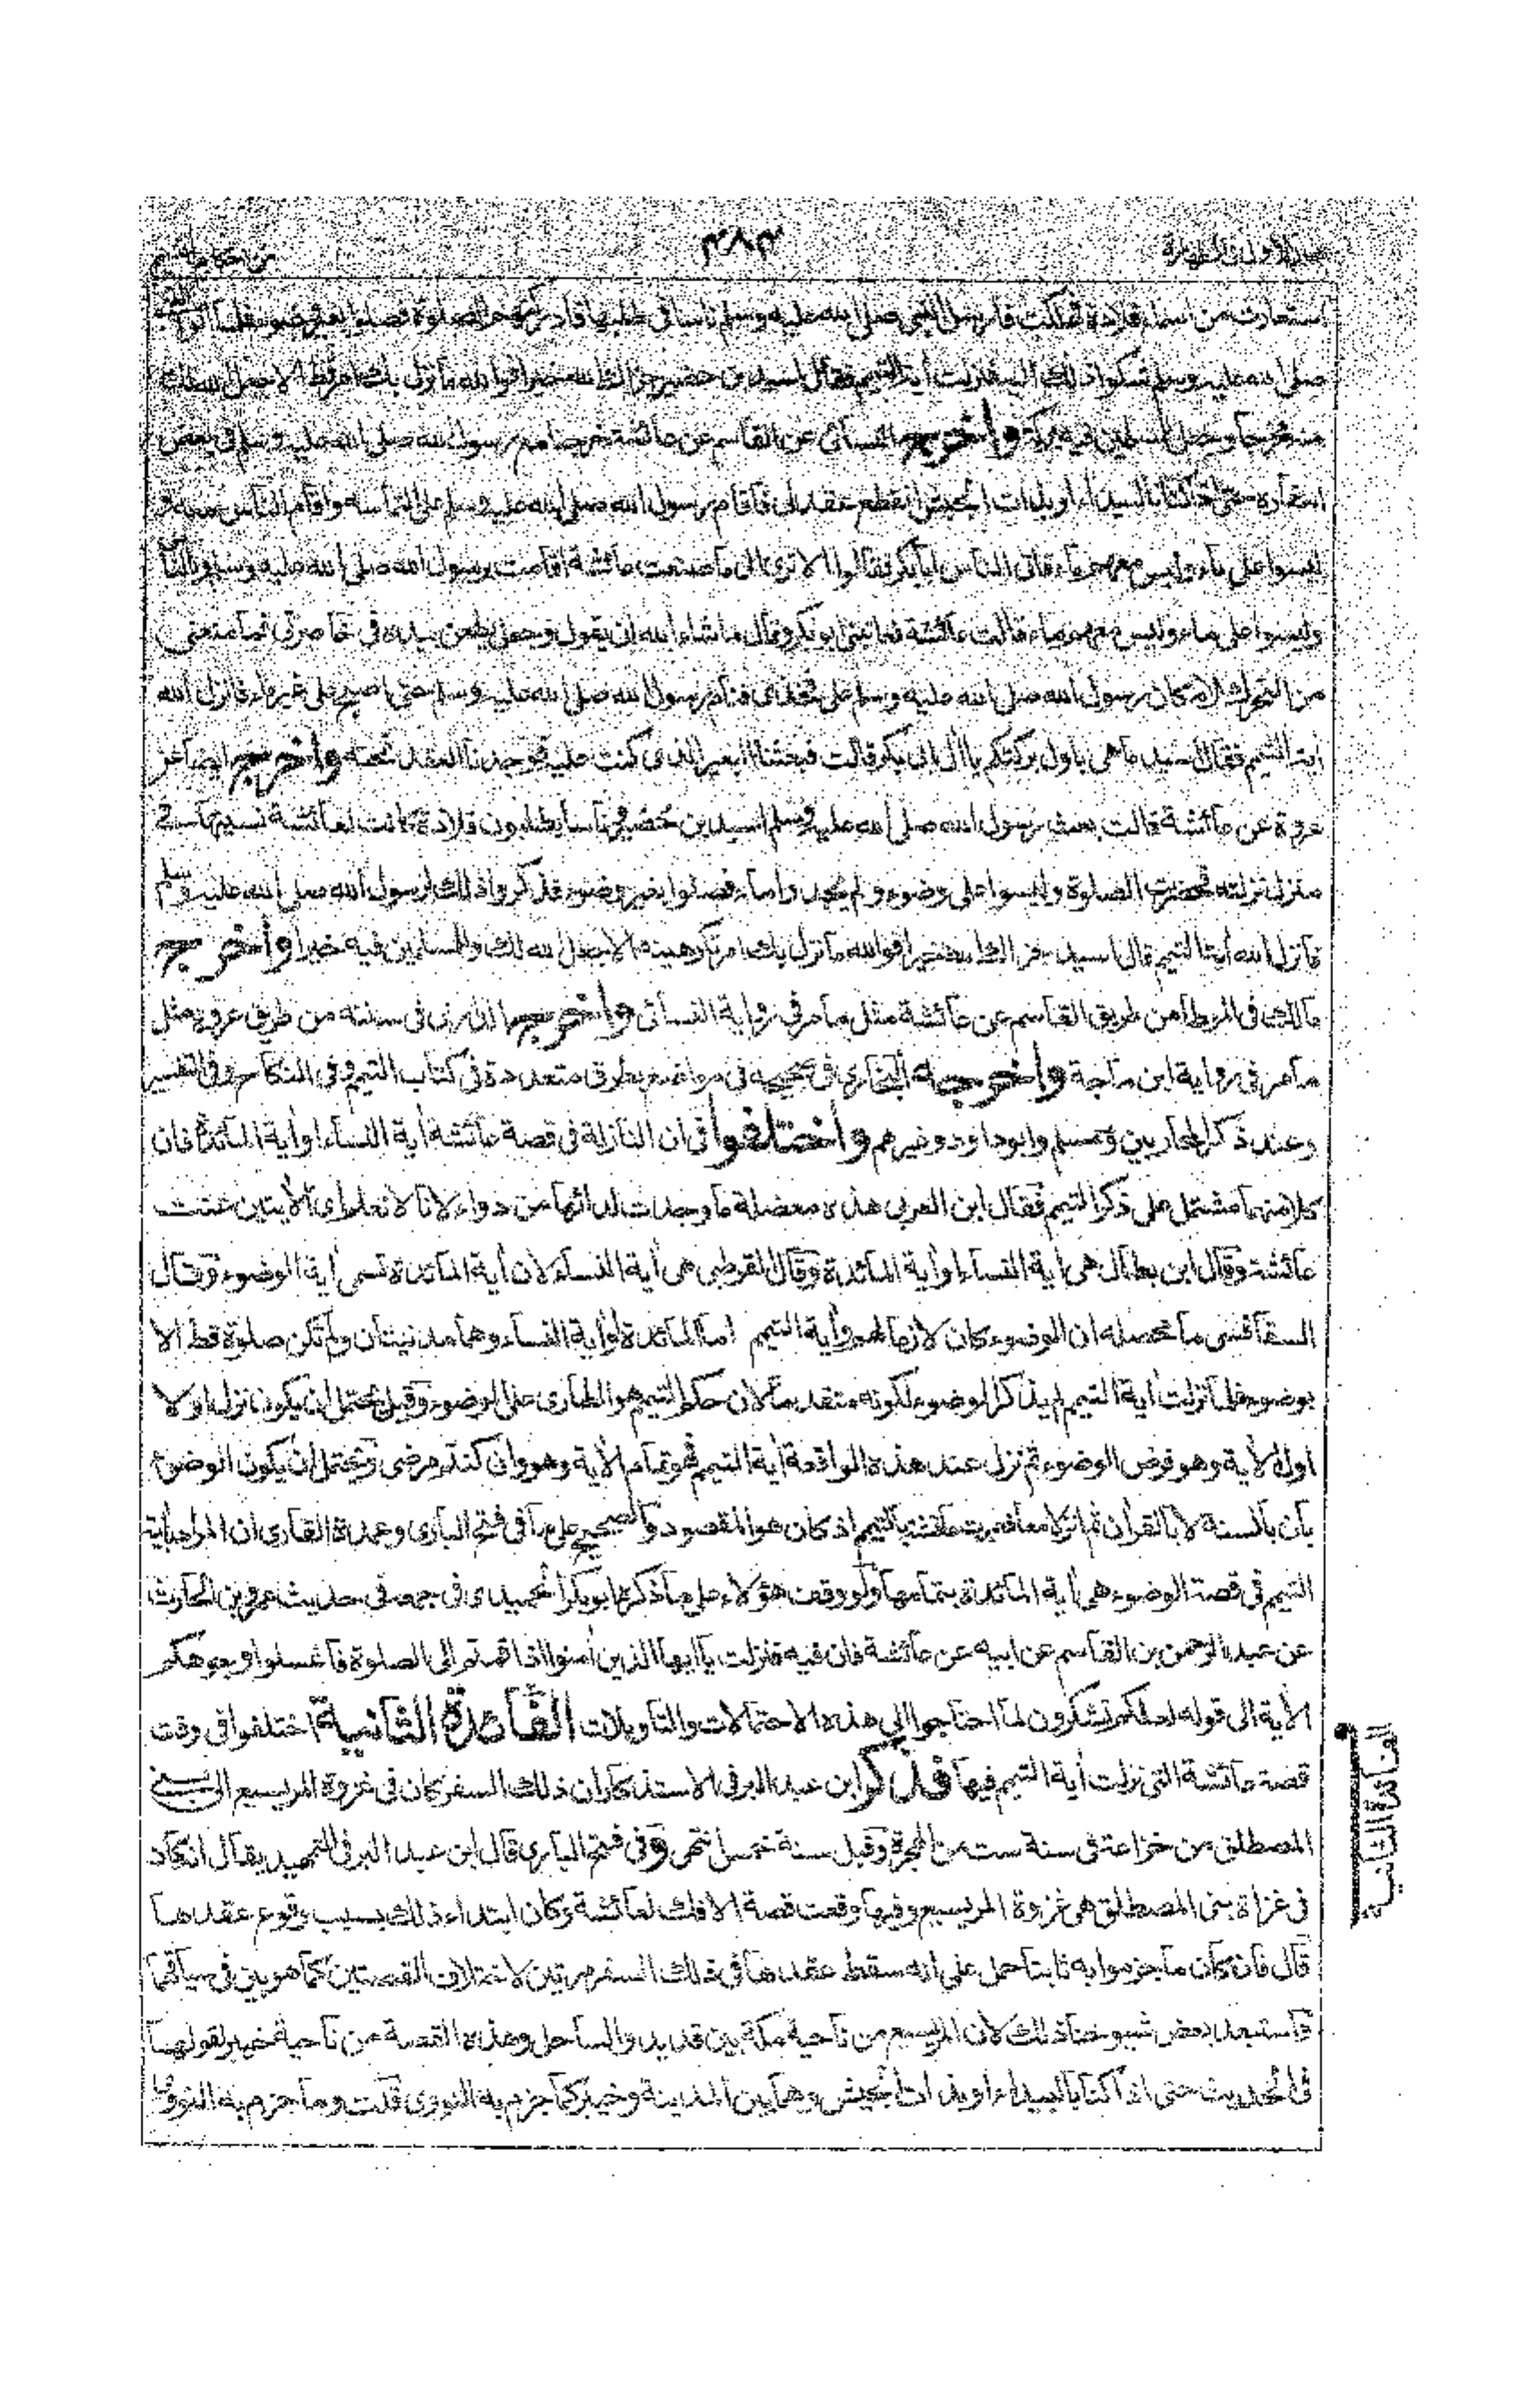 ٣٨٣
استعارت من اسماء قلادة فهلكت فارسل النبي صلى الله عليه وسلم ناسا في طلبها فادركتهم الصلوة فصلوا بغير وضوء فلما اتوا النبي
صلى الله عليه وسلم شكوا ذلك اليه فنزلت أية التيمم فقال اسيد بن حضير جزاك الله خيرا فوالله ما نزل بك امر قط الا جعل الله لك
منه مخرجا وجعل للمسلمين فيه بركة وأخرج النسائي عن القاسم عن عائشة خرجنا مع رسول الله صلى الله عليه وسلم في بعض
اسفاره حتى اذا كنا بالبيداء او بذات الجيش انقطع عقد لي فاقام رسول الله صلى الله عليه وسلم على التماسه واقام الناس معه و
ليسوا على ماء وليس معهم ماء فاتى الناس ابا بكر فقالوا الا ترى الى ما صنعت عائشة اقامت برسول الله صلى الله عليه وسلم وبالناس
وليسوا على ماء وليس معهم ماء قالت عائشة فعاتبني ابو بكر وقال ما شاء الله ان يقول وجعل يطعن بيده في خاصرتي فما منعني
من التحرك الا مكان رسول الله صلى الله عليه وسلم على فخذي فنام رسول الله صلى الله عليه وسلم حتى اصبح على غير ماء فانزل الله
أية التيمم فقال اسيد ما هي باول بركتكم يا أل ابي بكر قالت فبعثنا البعير الذي كنت عليه فوجدنا العقد تحته وأخرج ايضا عن
عروة عن عائشة قالت بعث رسول الله صلى الله عليه وسلم اسيد بن حضير وناسا يطلبون قلادة كانت لعائشة نسيتها في
منزل نزلته فحضرت الصلوة وليسوا على وضوء ولم يجدوا ماء فصلوا بغير وضوء فذكروا ذلك لرسول الله صلى الله عليه وسلم
فانزل الله أية التيمم قال اسيد جزاك الله خيرا فوالله ما نزل بك امر تكرهينه الا جعل الله لك وللمسلمين فيه خيرا وأخرج
مالك في الموطا من طريق القاسم عن عائشة مثل ما مر في رواية النسائي وأخرج الدارمي في سننه من طريق عروة مثل
ما مر في رواية ابن ماجة وأخرجه البخاري في صحيحه في مواضع بطرق متعددة في كتاب التيمم وفي النكاح وفي التفسير
وعند ذكر المحاربين ومسلم وابوداود وغيرهم واختلفوا في ان النازلة في قصة عائشة أية النساء او أية المائدة فان
كلا منهما مشتمل على ذكر التيمم فقال ابن العربي هذه معضلة ما وجدت لدائها من دواء لانا لا نعلم اي الأيتين عنت
عائشة وقال ابن بطال هي أية النساء او أية المائدة وقال القرطبي هي أية النساء لان أية المائدة تسمى أية الوضوء وقال
السفاقسي ما محصله ان الوضوء كان لازما لهم وأية التيمم اما المائدة او أية النساء وهما مدنيتان ولم تكن صلوة قط الا
بوضوء فلما نزلت أية التيمم لم يذكر الوضوء لكونه متقدما لان حكم التيمم هو الطاري على الوضوء وقيل يحتمل ان يكون نزل اولا
اول الأية وهو فرض الوضوء ثم نزل عند هذه الواقعة أية التيمم وهو تمام الأية وهو وان كنتم مرضى ويحتمل ان يكون الوضوء
بان بالسنة لا بالقرأن ثم انزلا معا فعبرت عائشة بالتيمم اذ كان هو المقصود والصحيح على ما في فتح الباري وعمدة القاري ان المراد بأية
التيمم في قصة الوضوء هي أية المائدة بتمامها ولو وقف هؤلاء على ما ذكره ابو بكر الحميدي في جمعه في حديث عمرو بن الحارث
عن عبد الرحمن بن القاسم عن ابيه عن عائشة فان فيه فنزلت يا ايها الذين أمنوا اذا قمتم الى الصلوة فاغسلوا وجوهكم
الأية الى قوله لعلكم تشكرون لما احتاجوا الى هذه الاحتمالات والتاويلات الفائدة الثانية اختلفوا في وقت
قصة عائشة التي نزلت أية التيمم فيها فذكر ابن عبد البر في الاستذكار ان ذلك السفر كان في غزوة المريسيع الى بني
المصطلق من خزاعة في سنة ست من الهجرة وقيل سنة خمس انتهى وفي فتح الباري قال ابن عبد البر في التمهيد يقال انه كان
في غزاة بني المصطلق هي غزوة المريسيع وفيها وقعت قصة الافك لعائشة وكان ابتداء ذلك بسبب وقوع عقدها
قال فان كان ما جزموا به ثابتا حمل على انه سقط عقدها في ذلك السفر مرتين لاختلاف القصتين كما هو بين في سياقهما
فاستبعد بعض شيوخنا ذلك لان المريسيع من ناحية مكة بين قديد والساحل وهذه القصة من ناحية خيبر لقولها
في الحديث حتى اذا كنا بالبيداء او بذات الجيش وهما بين المدينة وخيبر كما جزم به النووي قلت وما جزم به النووي
الفائدة الثانية